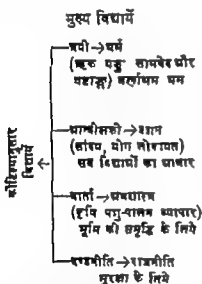 मुख्य विद्यायें
त्रयी→धर्म
(ऋक यजु सामवेद और
षडाङ्ग) वर्णाश्रम धर्म
कौटिल्यानुसार
विद्यायें
आन्वीक्षकी→दर्शन
(सांख्य, योग लोकायत)
सब विद्याओं का आधार
वार्ता→अर्थशास्त्र
(कृषि पशु-पालन व्यापार)
भूमि की समृद्धि के लिये
दण्डनीति→राजनीति
सुरक्षा के लिये